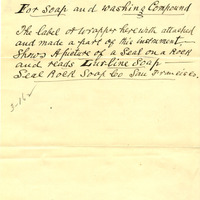 For Soap and washing Compound
The label or wrapper herewith attached
and made a part of this instrument
Shows A picture of a Seal on a Rock
and reads Lurline Soap
Seal Rock Soap Co San Francisco.